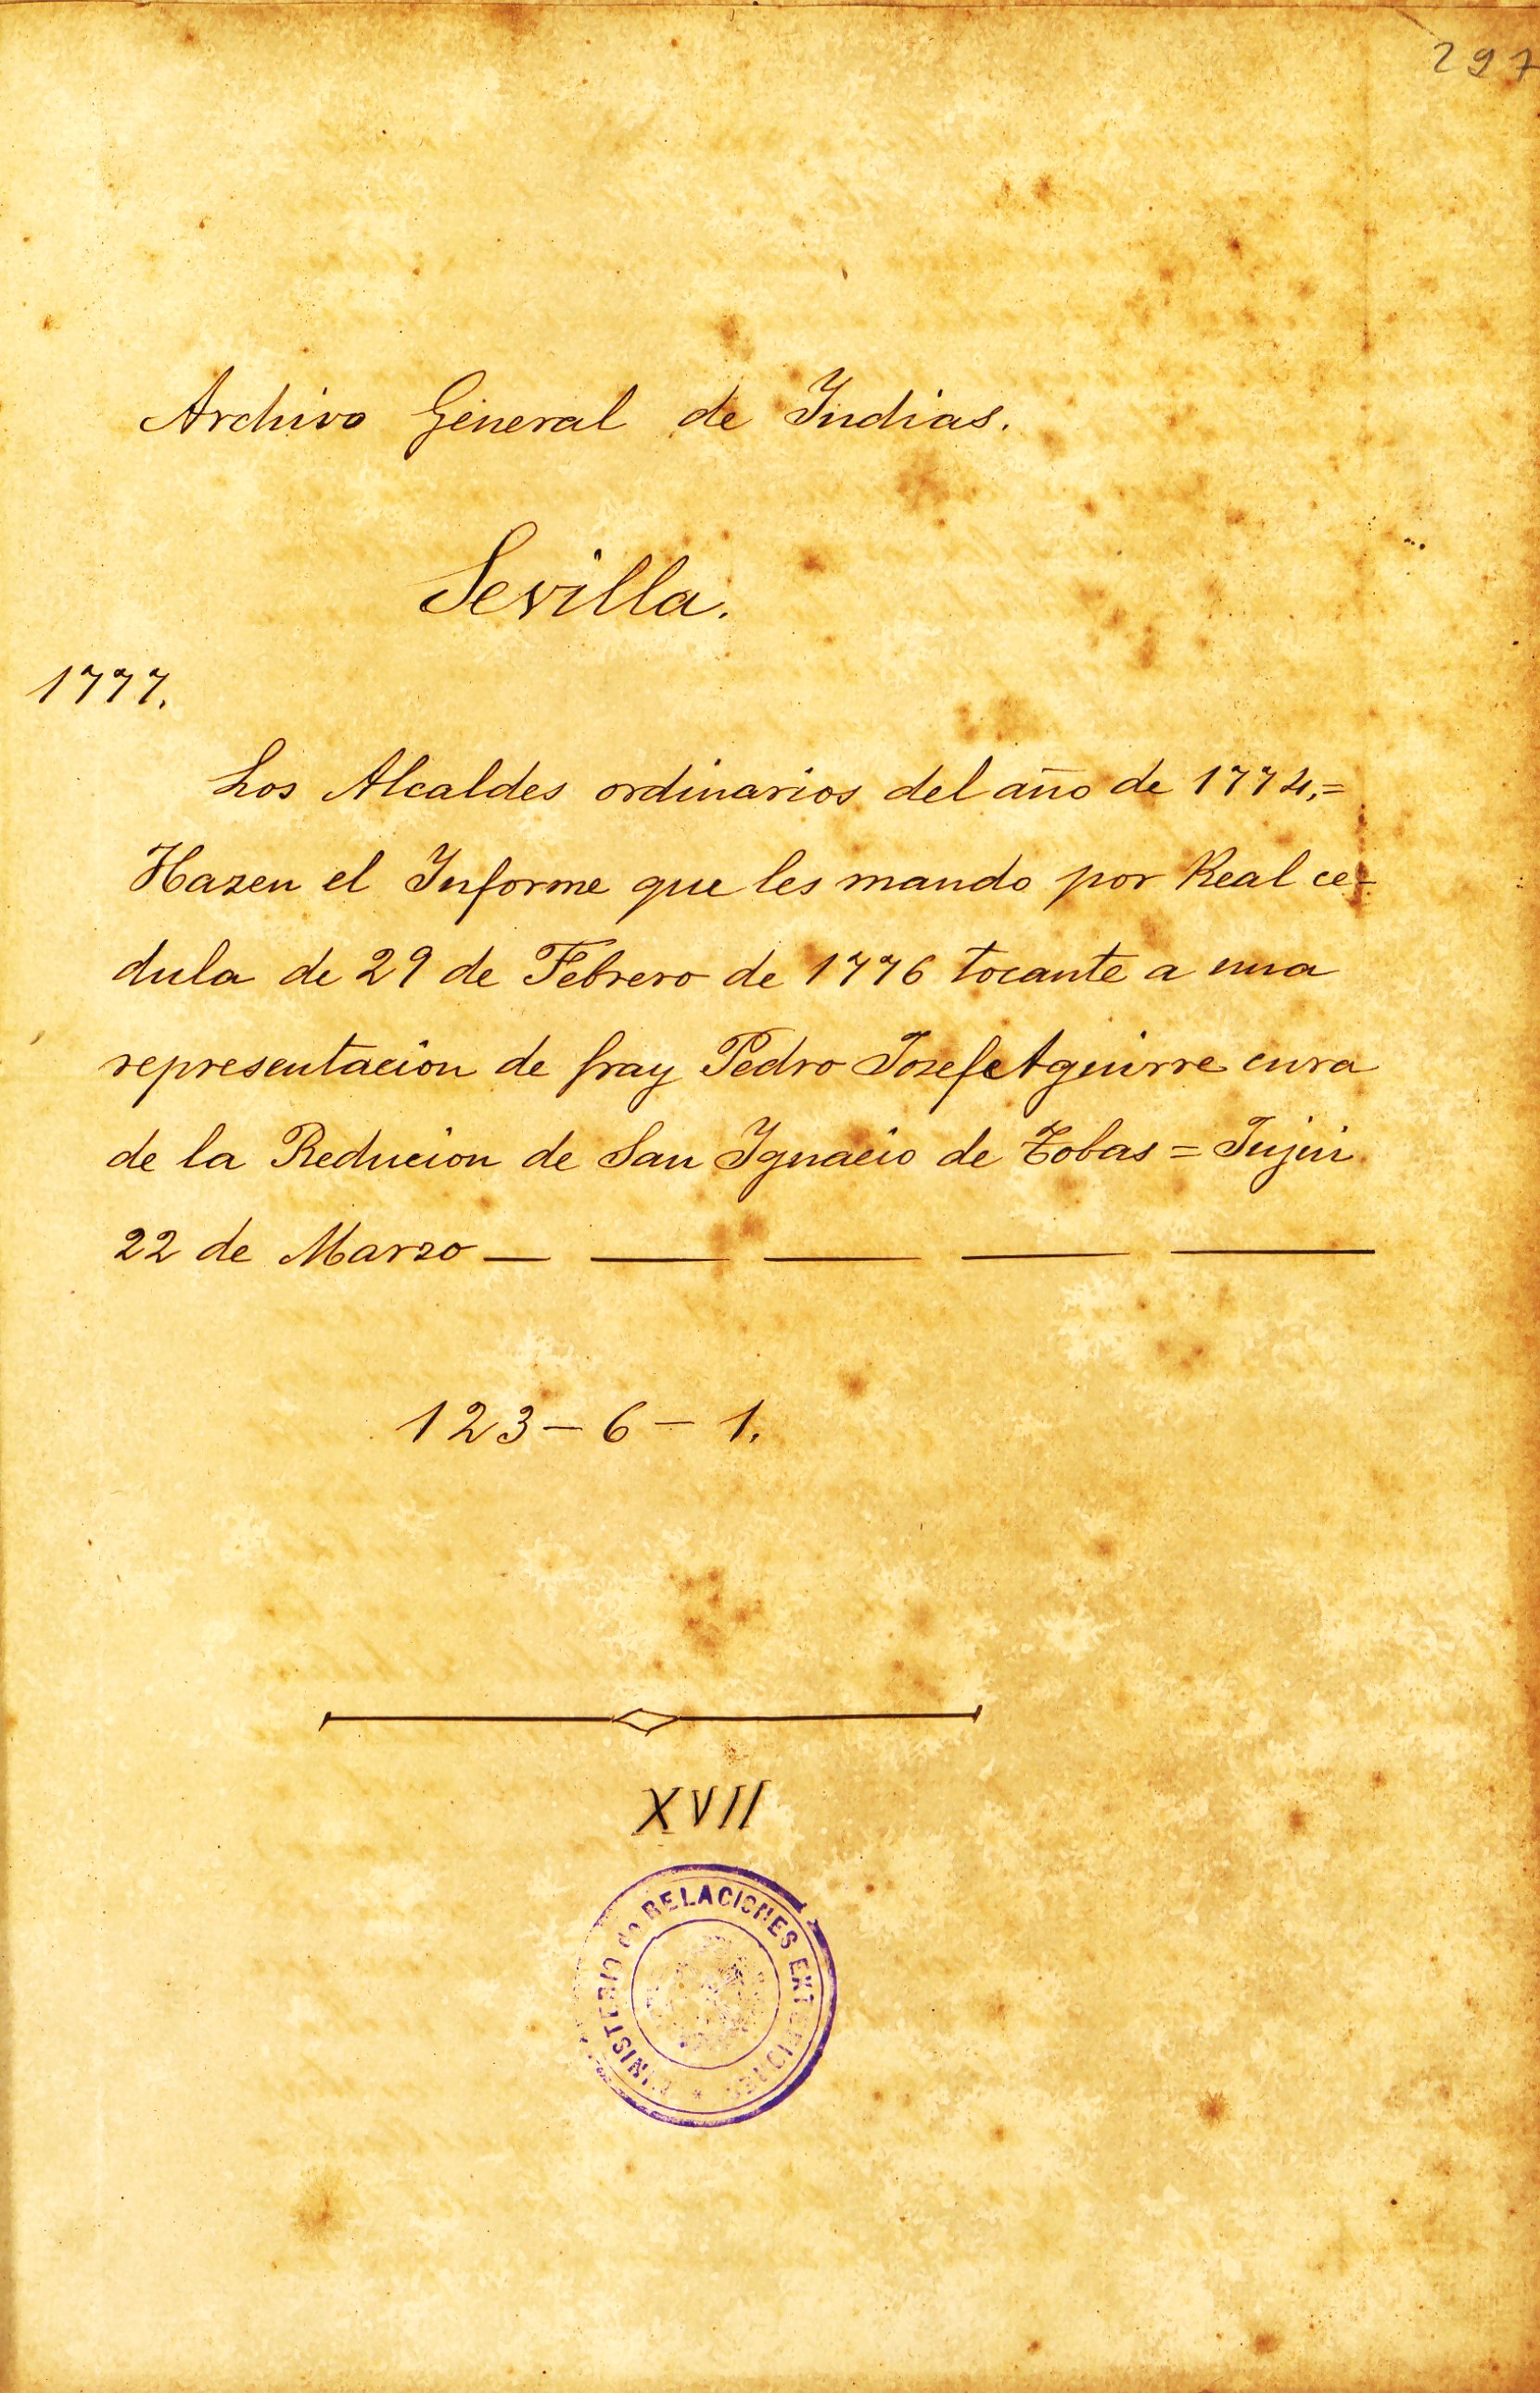 297
Archivo General de Indias.
Sevilla.
1777.
Los Alcaldes ordinarios del año de 1774,=
Hazen el Informe que les mando por Real ce-
dula de 29 de Febrero de 1776 tocante a una
representacion de fray Pedro Josef Aguirre cura
de la Reducion de San Ygnacio de Tobas = Jujui
22 de Marzo — — — — —
123-6-1.
XVII
MINISTERIO de RELACIONES EXTERIORES